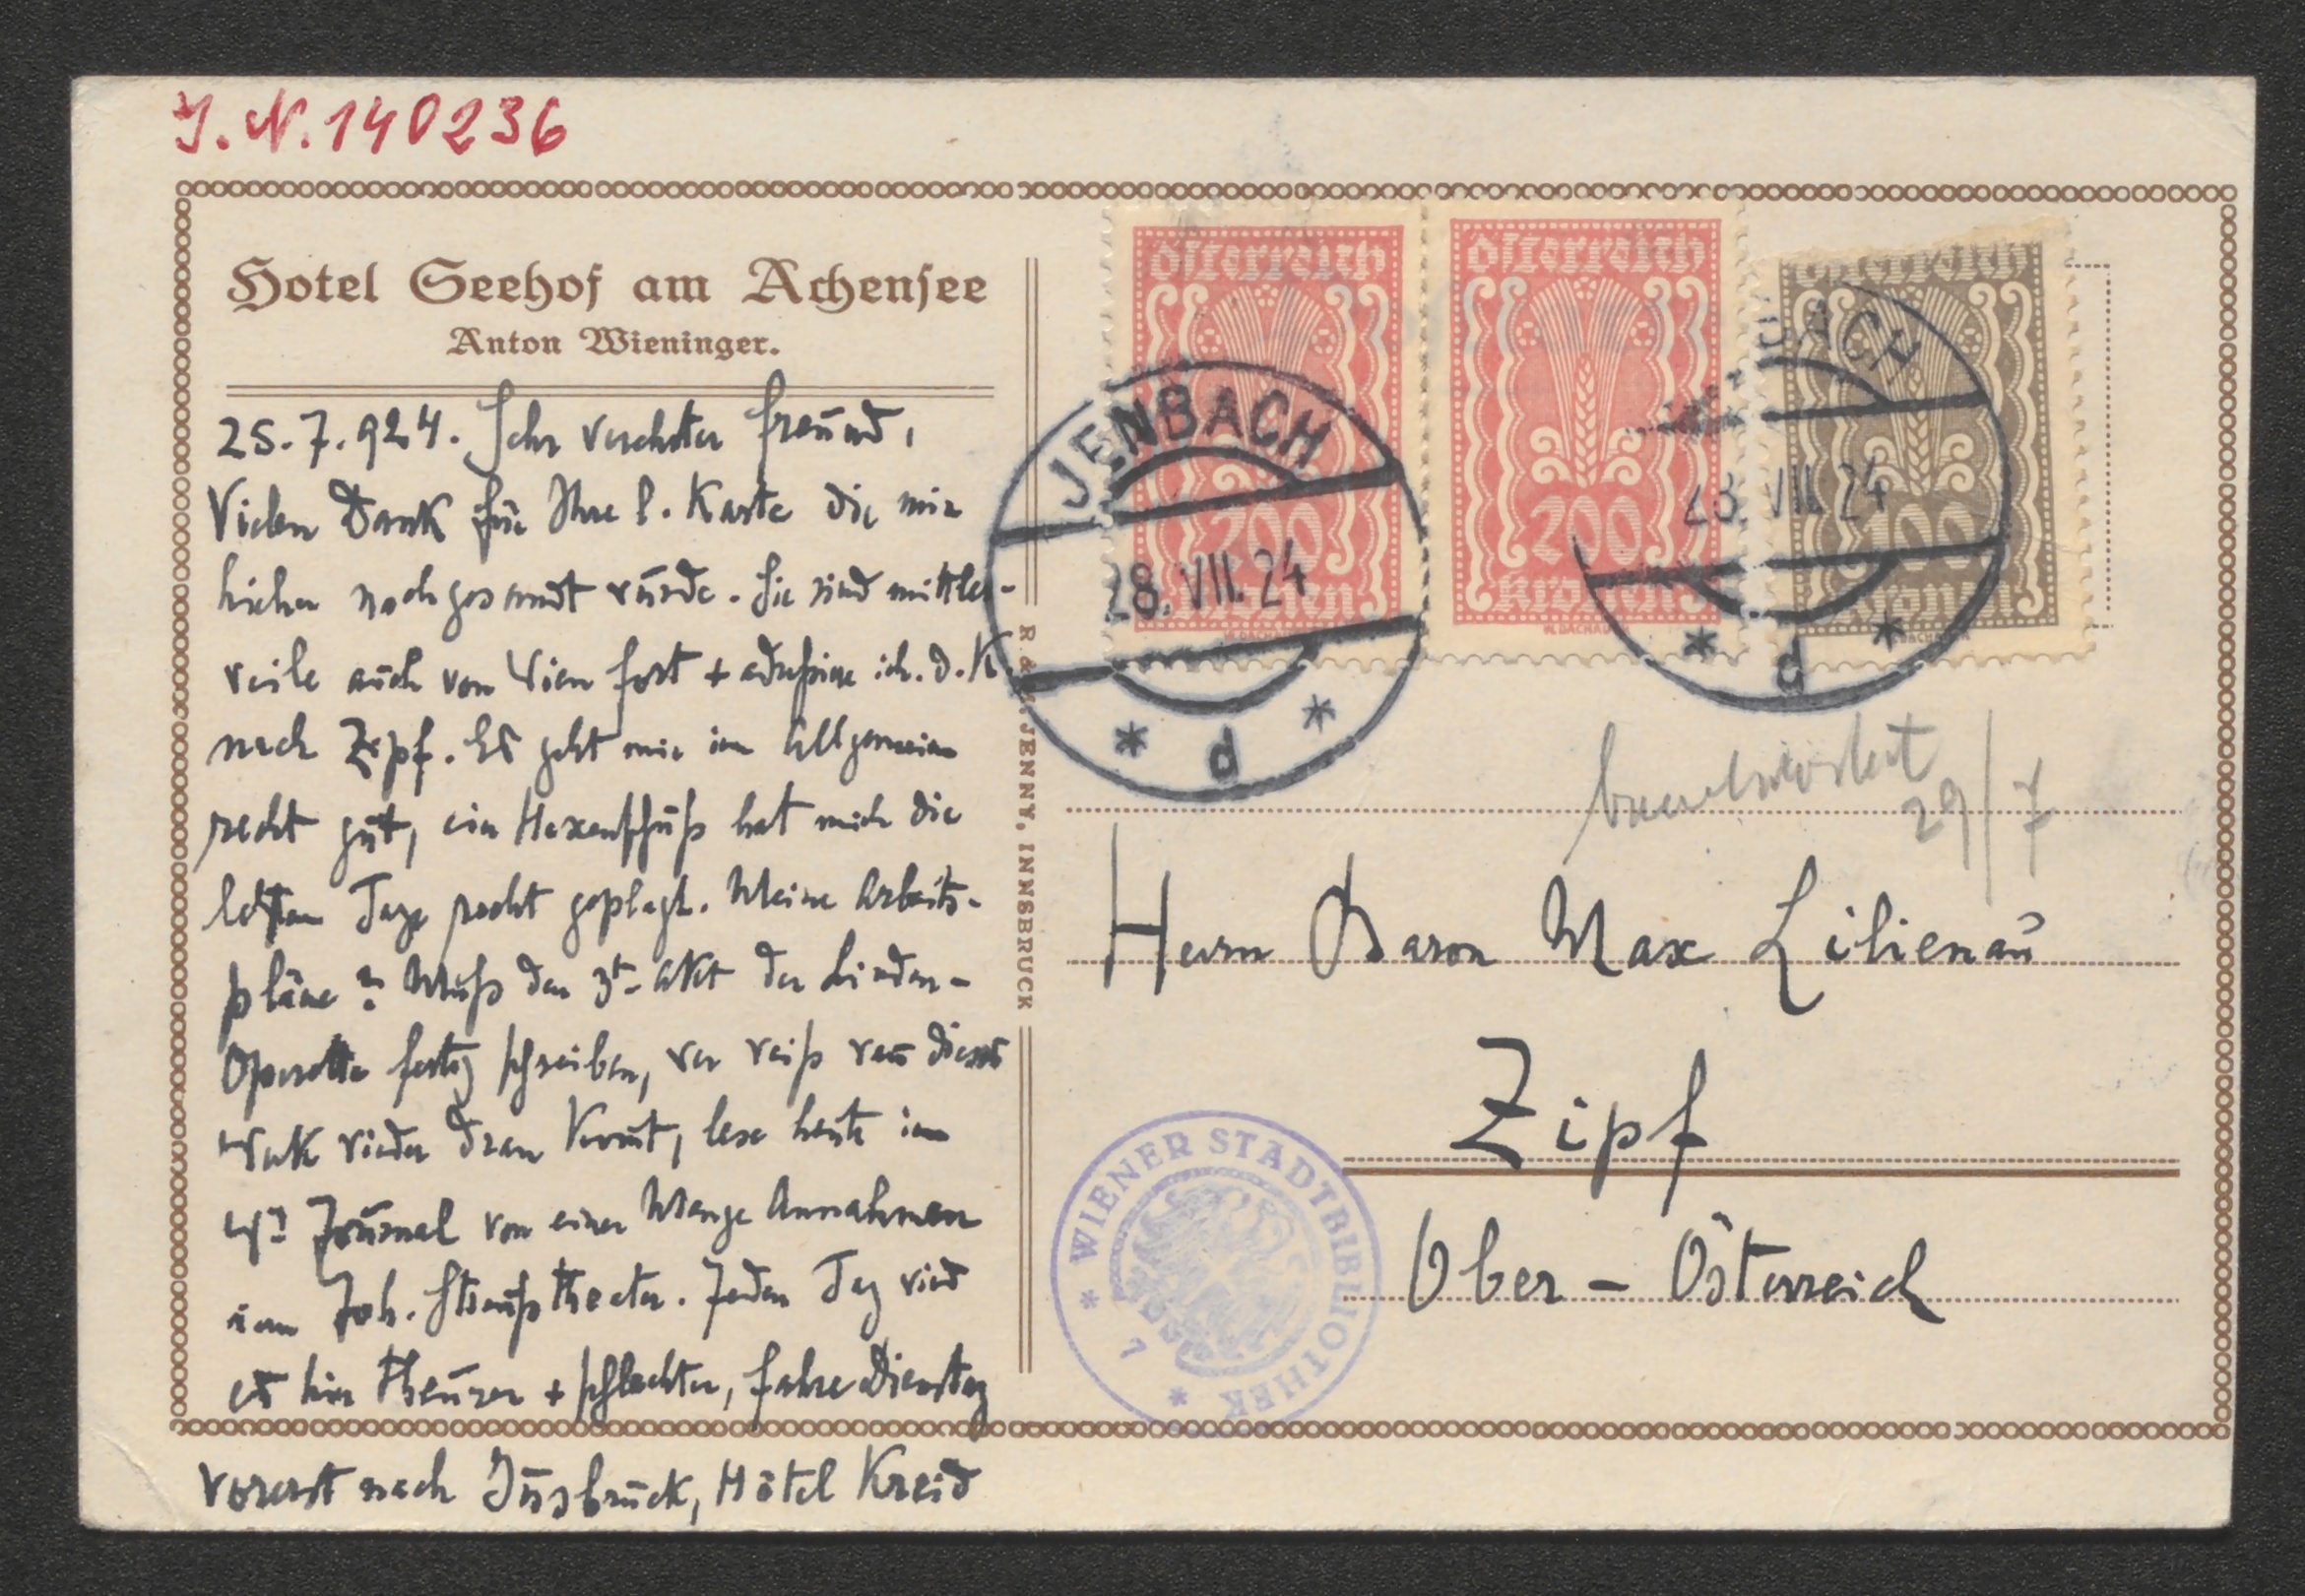 J.N. 140236
Hotel Seehof am Achensee
Anton Wieninger.
25.7.924. Sehr verehrter Freund,
Vielen Dank für Ihre l. Karte die mir
hieher nachgesandt wurde. Sie sind mittler-
weile auch von Wien fort + adressiere ich d. K
nach Zipf. Es geht mir im Allgemeinen
recht gut, ein Hexenschuß hat mich die
letzten Tage recht geplagt. Meine Arbeits-
pläne? Muß den 3t Akt der Linden-
Operette fertig schreiben, wer weiß wann dieses
Werk wieder dran kommt, lese heute im
Journal von einer Menge Annahmen
im Joh. Straußtheater. Jeden Tag wird
es hier theurer + schlechter, fahre Dienstag
vorerst nach Innsbruck, Hôtel Kreid
R. & JENNY, INNSBRUCK
österreich
200
Kronen
österreich
200
Kronen
österreich
100
Kronen
JENBACH
28. VII. 24
* d *
BACH
28. VII. 24
* d *
beantwortet
29/7
Herrn Baron Max Lilienau
Zipf
Ober-Österreich
* WIENER STADTBIBLIOTHEK *
7